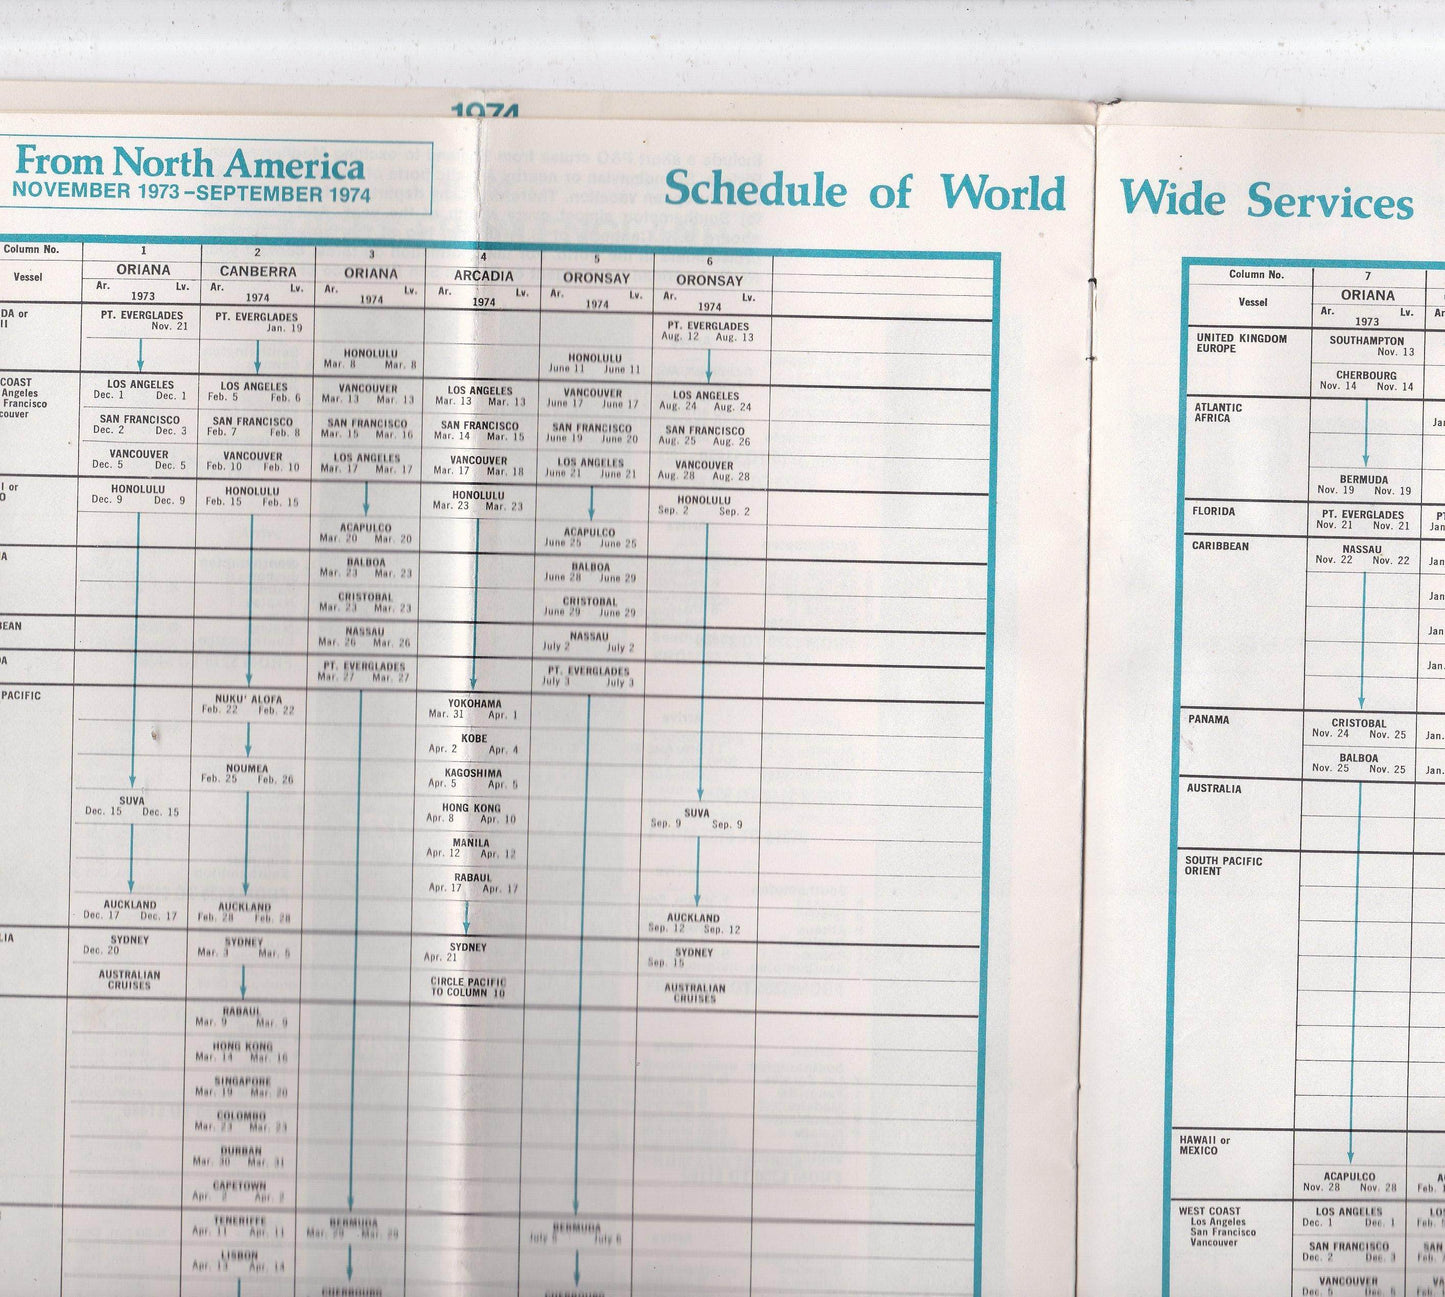 1974
From North America
NOVEMBER 1973–SEPTEMBER 1974
Schedule of World Wide Services
Column No. 1 2 3 4 5 6
Vessel ORIANA CANBERRA ORIANA ARCADIA ORONSAY ORONSAY
Ar. Lv. Ar. Lv. Ar. Lv. Ar. Lv. Ar. Lv. Ar. Lv.
1973 1974 1974 1974 1974 1974
DA or
II
COAST
Angeles
Francisco
couver
I or
O
A
BEAN
DA
PACIFIC
LIA
PT. EVERGLADES
Nov. 21
LOS ANGELES
Dec. 1 Dec. 1
SAN FRANCISCO
Dec. 2 Dec. 3
VANCOUVER
Dec. 5 Dec. 5
HONOLULU
Dec. 9 Dec. 9
SUVA
Dec. 15 Dec. 15
AUCKLAND
Dec. 17 Dec. 17
SYDNEY
Dec. 20
AUSTRALIAN
CRUISES
PT. EVERGLADES
Jan. 19
LOS ANGELES
Feb. 5 Feb. 6
SAN FRANCISCO
Feb. 7 Feb. 8
VANCOUVER
Feb. 10 Feb. 10
HONOLULU
Feb. 15 Feb. 15
NUKU' ALOFA
Feb. 22 Feb. 22
NOUMEA
Feb. 25 Feb. 26
AUCKLAND
Feb. 28 Feb. 28
SYDNEY
Mar. 3 Mar. 5
RABAUL
Mar. 9 Mar. 9
HONG KONG
Mar. 14 Mar. 16
SINGAPORE
Mar. 19 Mar. 20
COLOMBO
Mar. 23 Mar. 23
DURBAN
Mar. 30 Mar. 31
CAPETOWN
Apr. Apr.
TENERIFFE
Apr. 11 Apr. 11
LISBON
Apr. 13 Apr. 14
HONOLULU
Mar. 8 Mar. 8
VANCOUVER
Mar. 13 Mar. 13
SAN FRANCISCO
Mar. 15 Mar. 16
LOS ANGELES
Mar. 17 Mar. 17
ACAPULCO
Mar. 20 Mar. 20
BALBOA
Mar. 23 Mar. 23
CRISTOBAL
Mar. 23 Mar. 23
NASSAU
Mar. 26 Mar. 26
PT. EVERGLADES
Mar. 27 Mar. 27
BERMUDA
Mar. 29 Mar. 29
CHERBOURG
LOS ANGELES
Mar. 13 Mar. 13
SAN FRANCISCO
Mar. 14 Mar. 15
VANCOUVER
Mar. 17 Mar. 18
HONOLULU
Mar. 23 Mar. 23
YOKOHAMA
Mar. 31 Apr. 1
KOBE
Apr. 2 Apr. 4
KAGOSHIMA
Apr. 5 Apr. 5
HONG KONG
Apr. 8 Apr. 10
MANILA
Apr. 12 Apr. 12
RABAUL
Apr. 17 Apr. 17
SYDNEY
Apr. 21
CIRCLE PACIFIC
TO COLUMN 10
HONOLULU
June 11 June 11
VANCOUVER
June 17 June 17
SAN FRANCISCO
June 19 June 20
LOS ANGELES
June 21 June 21
ACAPULCO
June 25 June 25
BALBOA
June 28 June 29
CRISTOBAL
June 29 June 29
NASSAU
July 2 July 2
PT. EVERGLADES
July 3 July 3
BERMUDA
July July 6
CHERBOURG
PT. EVERGLADES
Aug. 12 Aug. 13
LOS ANGELES
Aug. 24 Aug. 24
SAN FRANCISCO
Aug. 25 Aug. 26
VANCOUVER
Aug. 28 Aug. 28
HONOLULU
Sep. 2 Sep. 2
SUVA
Sep. 9 Sep. 9
AUCKLAND
Sep. 12 Sep. 12
SYDNEY
Sep. 15
AUSTRALIAN
CRUISES
Column No. 7
Vessel ORIANA
Ar. Lv. Ar
1973
UNITED KINGDOM
EUROPE
SOUTHAMPTON
Nov. 13
CHERBOURG
Nov. 14 Nov. 14
ATLANTIC
AFRICA
Jan
BERMUDA
Nov. 19 Nov. 19
FLORIDA
PT. EVERGLADES PT
Nov. 21 Nov. 21 Jan
CARIBBEAN
NASSAU
Nov. 22 Nov. 22 Jan
Jan.
Jan.
Jan.
PANAMA
CRISTOBAL
Nov. 24 Nov. 25 Jan.
BALBOA
Nov. 25 Nov. 25 Jan.
AUSTRALIA
SOUTH PACIFIC
ORIENT
HAWAII or
MEXICO
ACAPULCO A
Nov. 28 Nov. 28 Feb.
WEST COAST
Los Angeles
San Francisco
Vancouver
LOS ANGELES LO
Dec. 1 Dec. 1 Feb.
SAN FRANCISCO SAN
Dec. 2 Dec. 3 Feb.
VANCOUVER VA
Dec. 5 Dec. 5 Feb.